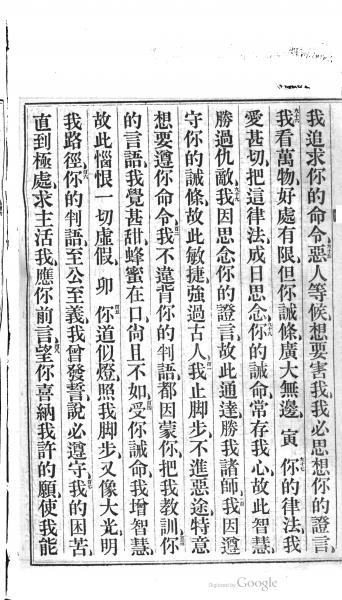 我追求你的命令、惡人等候想要害我、我必思想你的證言、
我看萬物、好處有限、但你誡條廣大無邊、寅 你的律法、我
愛甚切、把這律法、成日思念、你的誡命常存我心、故此智慧
勝過仇敵、我因思念你的證言、故此通達、勝我諸師、我因遵
守你的誡條、故此敏捷、強過古人、我止脚步不進惡途、特意
想要遵你命令、我不違背你的判語、都因蒙你把我教訓、你
的言語、我覺甚甜、蜂蜜在口、尙且不如、受你誡命、我增智慧、
故此惱恨一切虛假、卯 你道似燈、照我脚步、又像大光、明
我路徑、你的判語、至公至義、我曾發誓、說必遵守、我的困苦、
直到極處、求主活我、應你前言、望你喜納我許的願、使我能
Digitized by Google